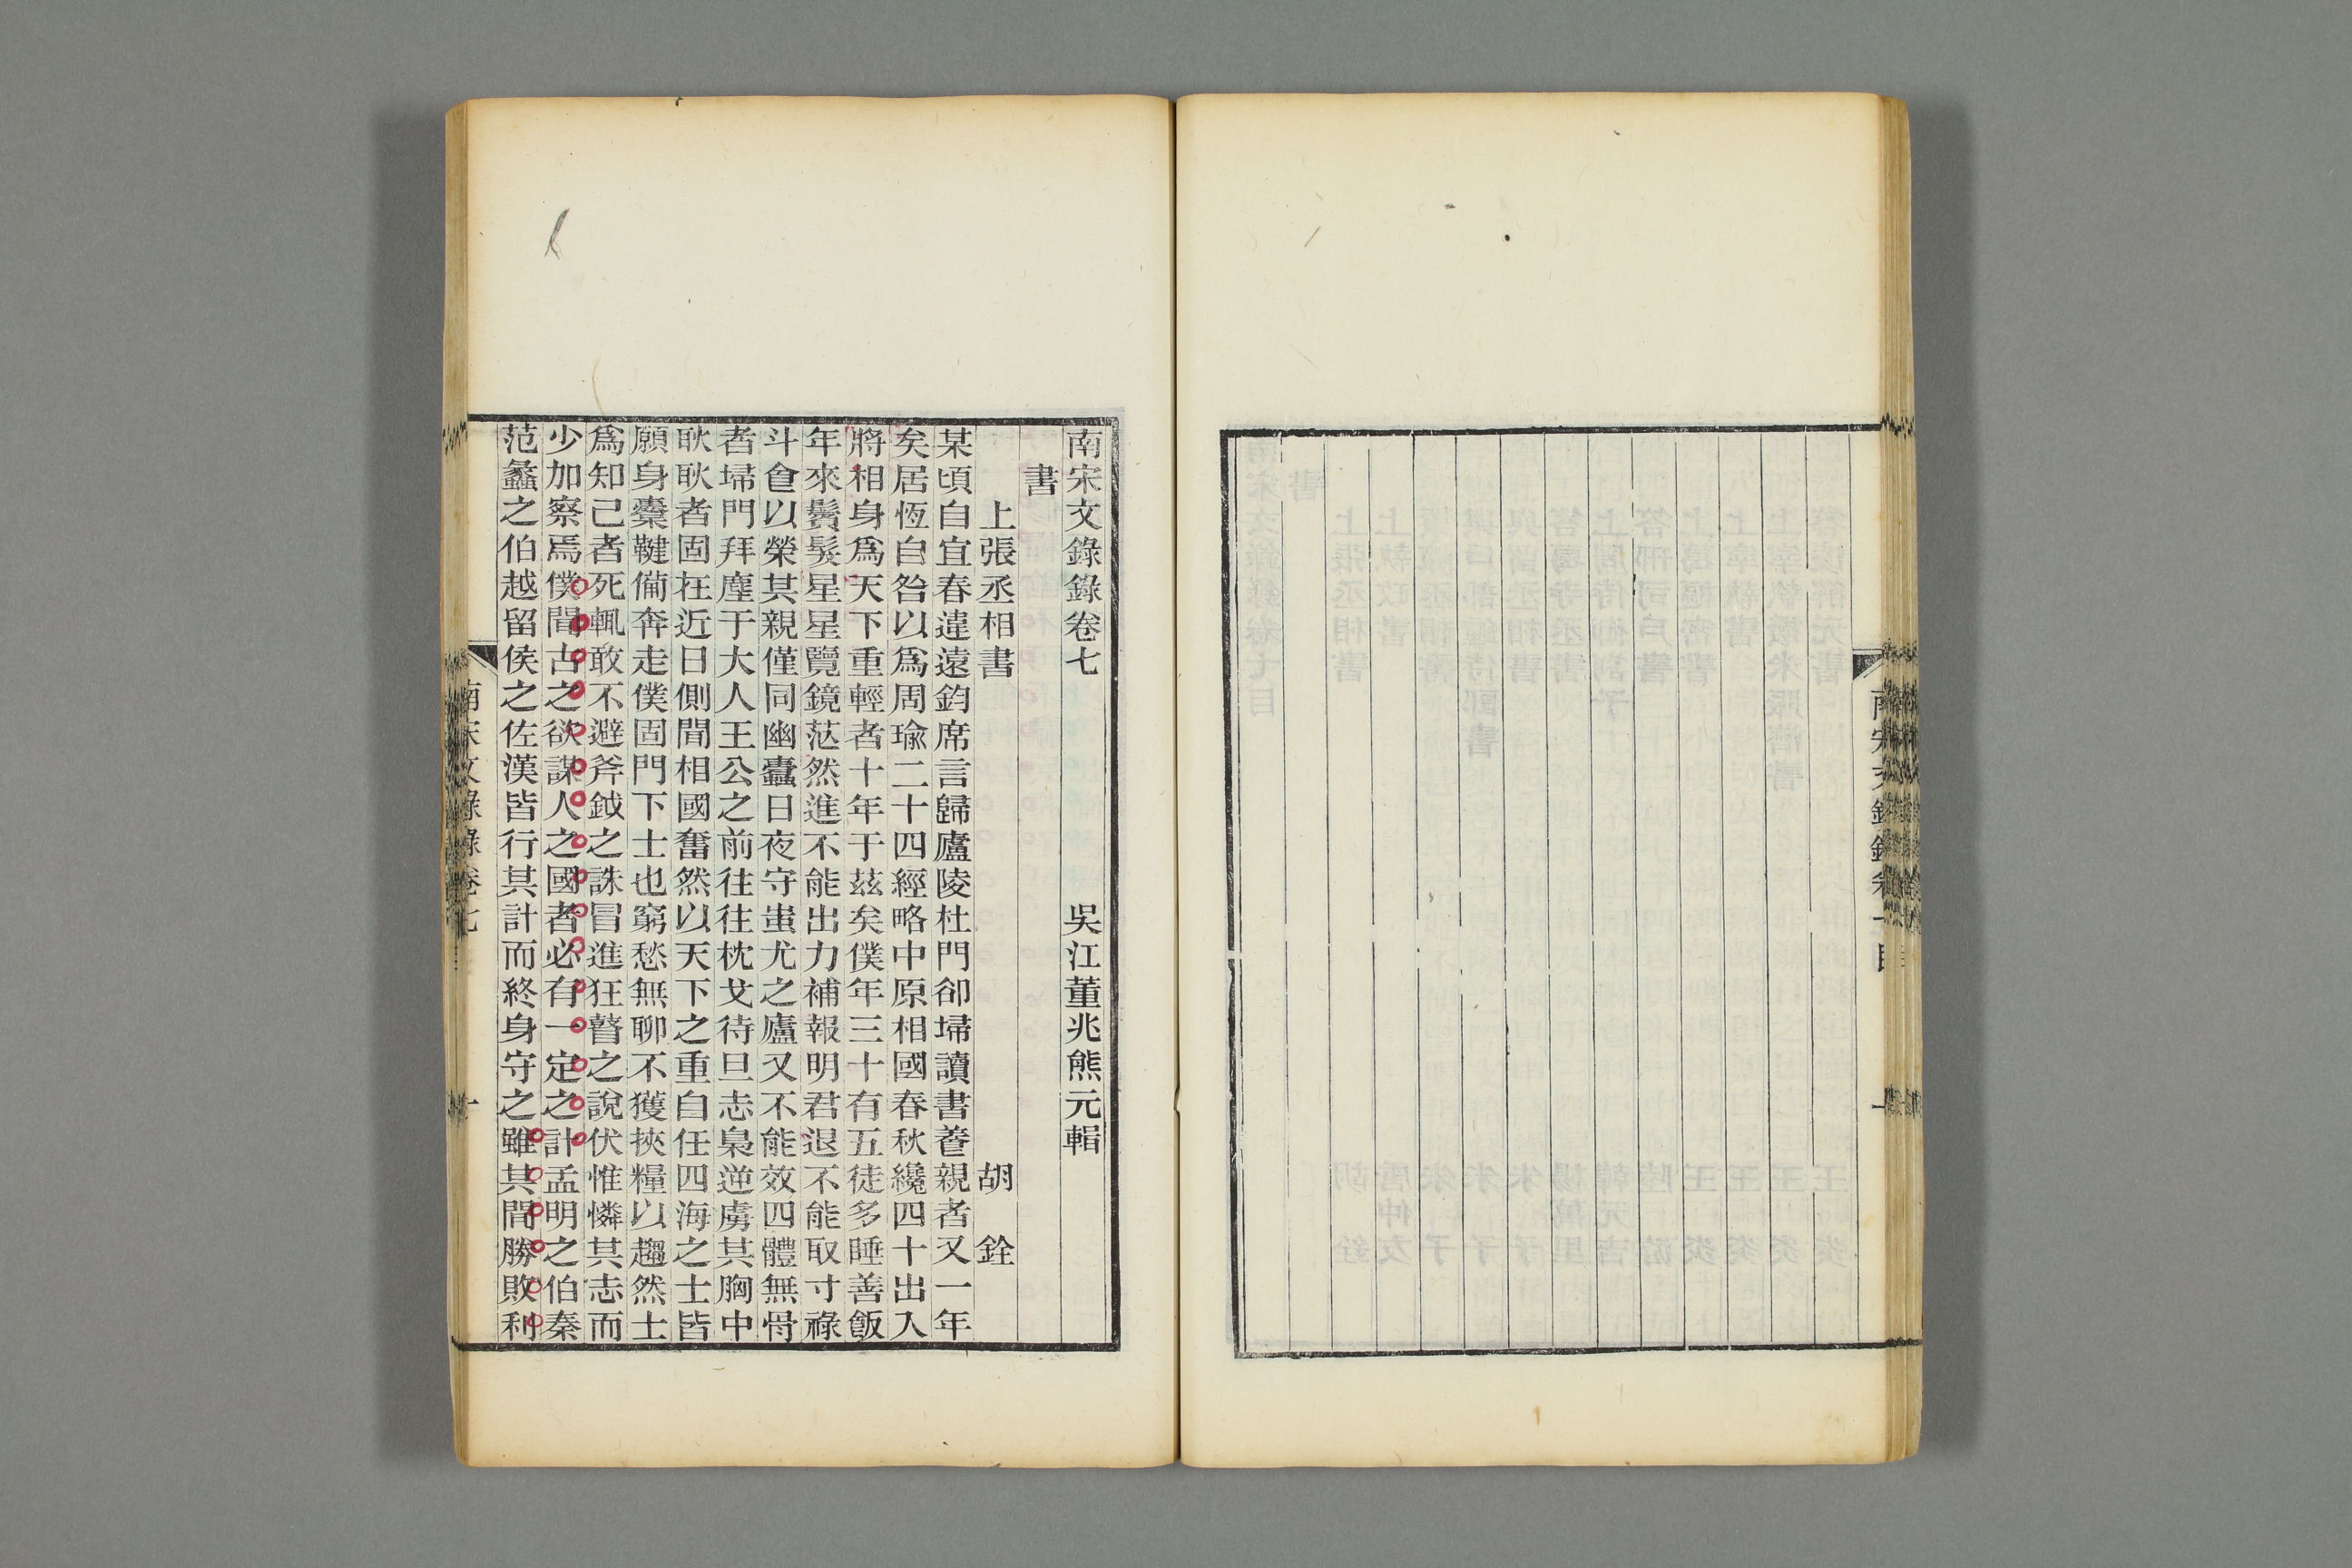 南宋文錄錄卷七 吳江董兆熊元輯
書
上張丞相書 胡銓
某頃自宜春違遠鈞席言歸廬陵杜門卻埽讀書養親者又一年
矣居恆自咎以爲周瑜二十四經略中原相國春秋纔四十出入
將相身爲天下重輕者十年于茲矣僕年三十有五徒多睡善飯
年來鬢髮星星覽鏡茫然進不能出力補報明君退不能取寸祿
斗食以榮其親僅同幽蠹日夜守蚩尤之廬又不能效四體無骨
者埽門拜塵于大人王公之前往往枕戈待旦志梟逆虜其胸中
耿耿者固在近日側聞相國奮然以天下之重自任四海之士皆
願身櫜鞬僃奔走僕固門下士也窮愁無聊不獲挾糧以趨然士
爲知己者死輒敢不避斧鉞之誅冒進狂瞽之說伏惟憐其志而
少加察焉僕聞古之欲謀人之國者必有一定之計孟明之伯秦
范蠡之伯越留侯之佐漢皆行其計而終身守之雖其間勝敗利